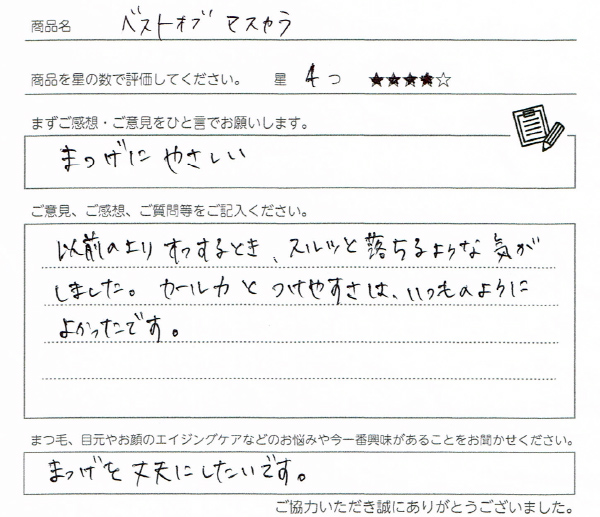 商品名 ベストオブ マスカラ
商品を星の数で評価してください。 星 4つ ★★★★☆
まずご感想・ご意見をひと言でお願いします。
まつげにやさしい
ご意見、ご感想、ご質問等をご記入ください。
以前のより するとき、スルッと落ちるような気が
しました。カールカとつけやすさは、いつものように
よかったです。
まつ毛、目元やお顔のエイジングケアなどのお悩みや今一番興味があることをお聞かせください。
まつげを丈夫にしたいです。
ご協力いただき誠にありがとうございました。